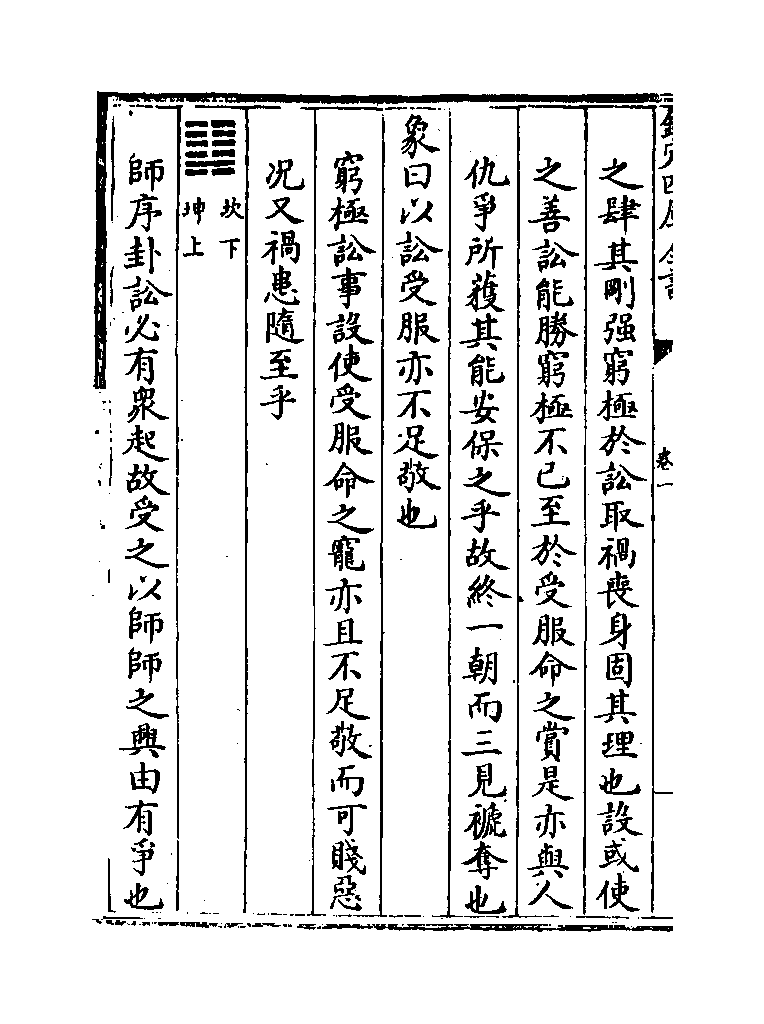 欽定四庫全書
卷一
之肆其剛强窮極於訟取禍喪身固其理也設或使
之善訟能勝窮極不已至於受服命之賞是亦與人
仇爭所獲其能安保之乎故終一朝而三見褫奪也
象曰以訟受服亦不足敬也
窮極訟事設使受服命之寵亦且不足敬而可賤惡
況又禍患隨至乎
坎下
坤上
師序卦訟必有衆起故受之以師師之興由有爭也